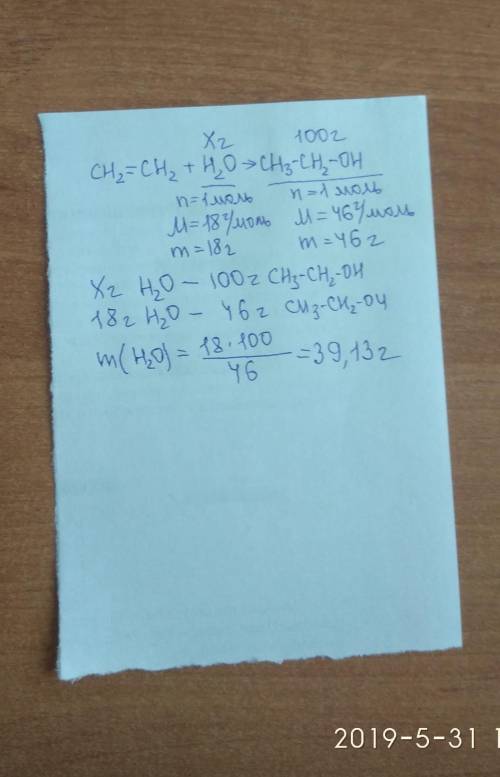 Xг 100г
CH₂=CH₂ + H₂O → CH₃-CH₂-OH
n=1моль n=1моль
M=18г/моль M=46г/моль
m=18г m=46г
Xг H₂O – 100г CH₃-CH₂-OH
18г H₂O – 46г CH₃-CH₂-OH
m(H₂O) = 18·100/46 = 39,13г
2019-5-31 1